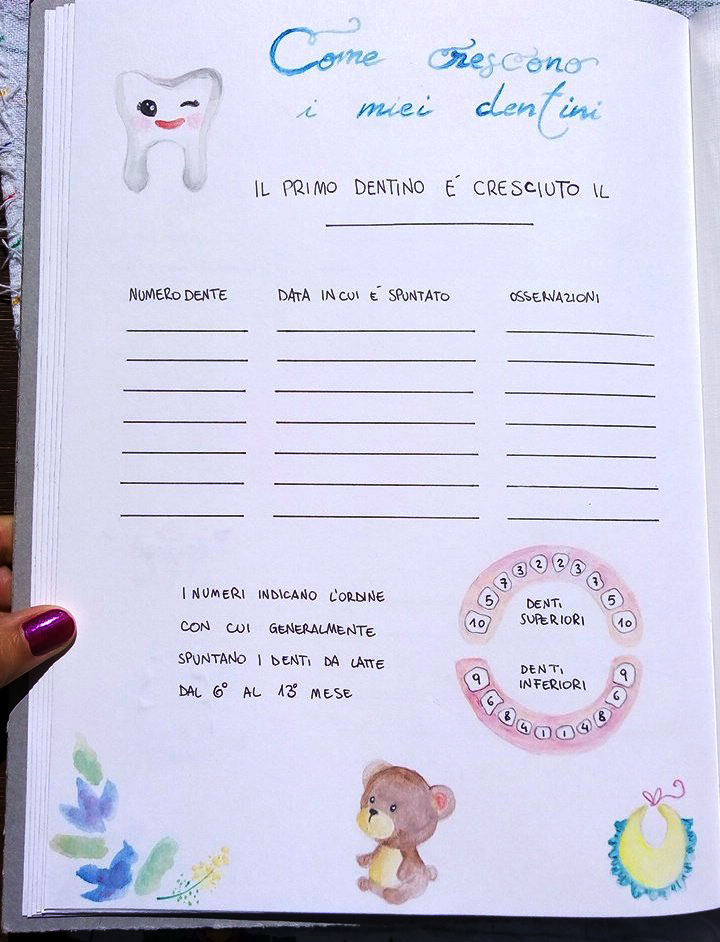 Come crescono
i miei dentini
IL PRIMO DENTINO E´ CRESCIUTO IL
NUMERO DENTE DATA IN CUI E´ SPUNTATO OSSERVAZIONI
I NUMERI INDICANO L'ORDINE
CON CUI GENERALMENTE
SPUNTANO I DENTI DA LATTE
DAL 6° AL 13° MESE
10 5 7 3 2 2 3 7 5 10
DENTI
SUPERIORI
DENTI
INFERIORI
9 6 8 4 1 1 4 8 6 9